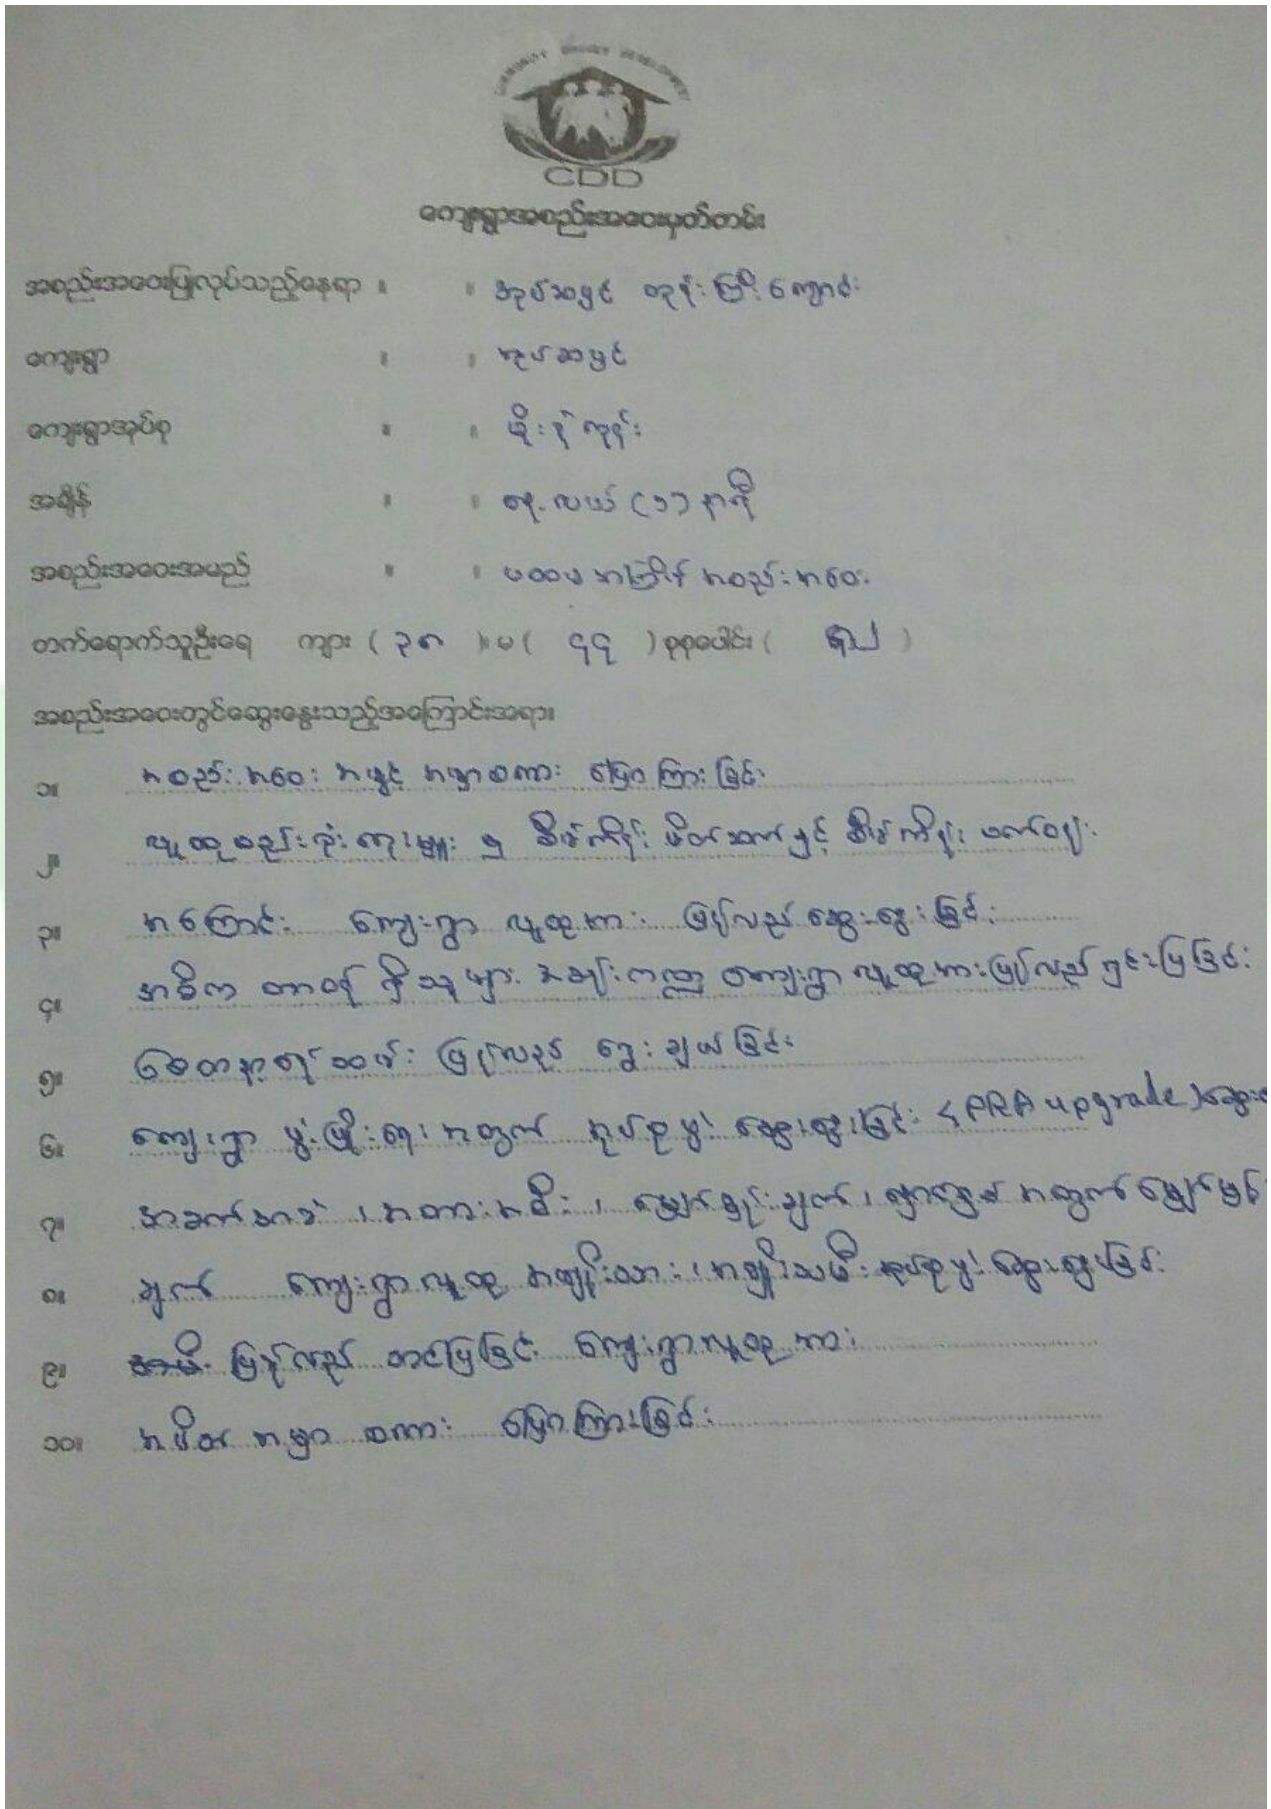 COMMUNITY DRIVEN DEVELOPMENT
CDD
ကျေးရွာအစည်းအဝေးမှတ်တမ်း
အစည်းအဝေးပြုလုပ်သည့်နေရာ ။ ။ အုပ်ဆပွင့် ဘုန်းကြီးကျောင်း
ကျေးရွာ ။ ။ အုပ်ဆပွင့်
ကျေးရွာအုပ်စု ။ ။
အချိန် ။ ။ နေ့လယ် (၁) နာရီ
အစည်းအဝေးအမည် ။ ။ ပထမအကြိမ် အစည်းအဝေး
တက်ရောက်သူဦးရေ ကျား ( ၃၈ )။ မ ( ၄၄ ) စုစုပေါင်း ( ၈၂ )
အစည်းအဝေးတွင်ဆွေးနွေးသည့်အကြောင်းအရာ။
၁။ အစည်းအဝေး အဖွင့် အမှာစကား ပြောကြားခြင်း
၂။ လူထုစည်းရုံးရေးမှူး မှ စီမံကိန်း မိတ်ဆက်နှင့် စီမံကိန်း ပတ်ဝန်း
၃။ အကြောင်း ကျေးရွာ လူထုအား ပြန်လည် ဆွေးနွေးခြင်း
၄။ အဓိက တာဝန် ရှိသူများ ကဏ္ဍ ကျေးရွာ လူထုအား ပြန်လည် ရှင်းပြခြင်း
၅။ စေတနာ့ဝန်ထမ်း ပြန်လည် ရွေးချယ်ခြင်း
၆။ ကျေးရွာ ဖွံ့ဖြိုးရေး အတွက် အုပ်စုဖွဲ့ ဆွေးနွေးခြင်း (PRA upgrade)
၇။ အခက်အခဲ ၊ အတားအဆီး ၊ မျှော်မှန်းချက် ၊ အတွက် မျှော်မှန်း
၈။ ချက် ကျေးရွာလူထု အမျိုးသား ၊ အမျိုးသမီး အုပ်စုဖွဲ့ ဆွေးနွေးခြင်း
၉။ ပြန်လည် တင်ပြခြင်း ကျေးရွာလူထုအား
၁၀။ အပိတ် အမှာ စကား ပြောကြားခြင်း